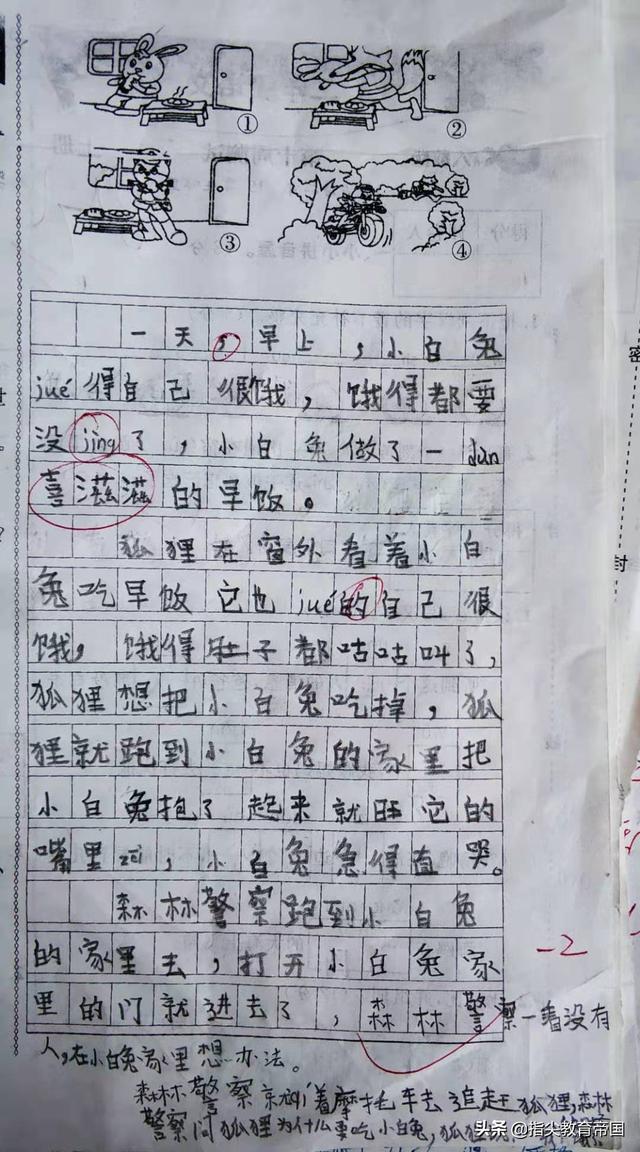 ①
②
③
④
一天，早上，小白兔
jué得自己很饿，饿得都要
没jìng了，小白兔做了一dùn
喜滋滋的早饭。
狐狸在窗外看着小白
兔吃早饭它也jué的自己很
饿，饿得肚子都咕咕叫了，
狐狸想把小白兔吃掉，狐
狸就跑到小白兔的家里把
小白兔抱了起来就旺它的
嘴里，小白兔急得直哭。
森林警察跑到小白兔
的家里去，打开小白兔家
里的门就进去了，森林警察一看没有
-2
人，在小白兔家里想办法。
森林警察就着摩托车去追赶狐狸，森林
警察问狐狸为什么要吃小白兔，狐狸说
密
封
头条 @指尖教育帝国